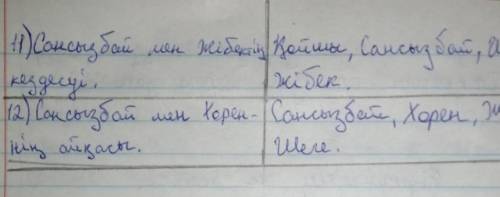 11) Сансызбай мен Жібектің
кездесуі.
Қойшы, Сансызбай,
Жібек.
12) Сансызбай мен Хорен-
нің айқасы.
Сансызбай, Хорен,
Шеге.